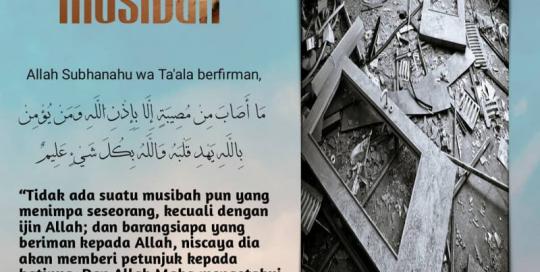 musibah
Allah Subhanahu wa Ta'ala berfirman,
مَا أَصَابَ مِنْ مُصِيبَةٍ إِلَّا بِإِذْنِ اللَّهِ وَمَنْ يُؤْمِنْ
بِاللَّهِ يَهْدِ قَلْبَهُ وَاللَّهُ بِكُلِّ شَيْءٍ عَلِيمٌ
“Tidak ada suatu musibah pun yang
menimpa seseorang, kecuali dengan
ijin Allah; dan barangsiapa yang
beriman kepada Allah, niscaya dia
akan memberi petunjuk kepada
hatinya. Dan Allah Maha mengetahui